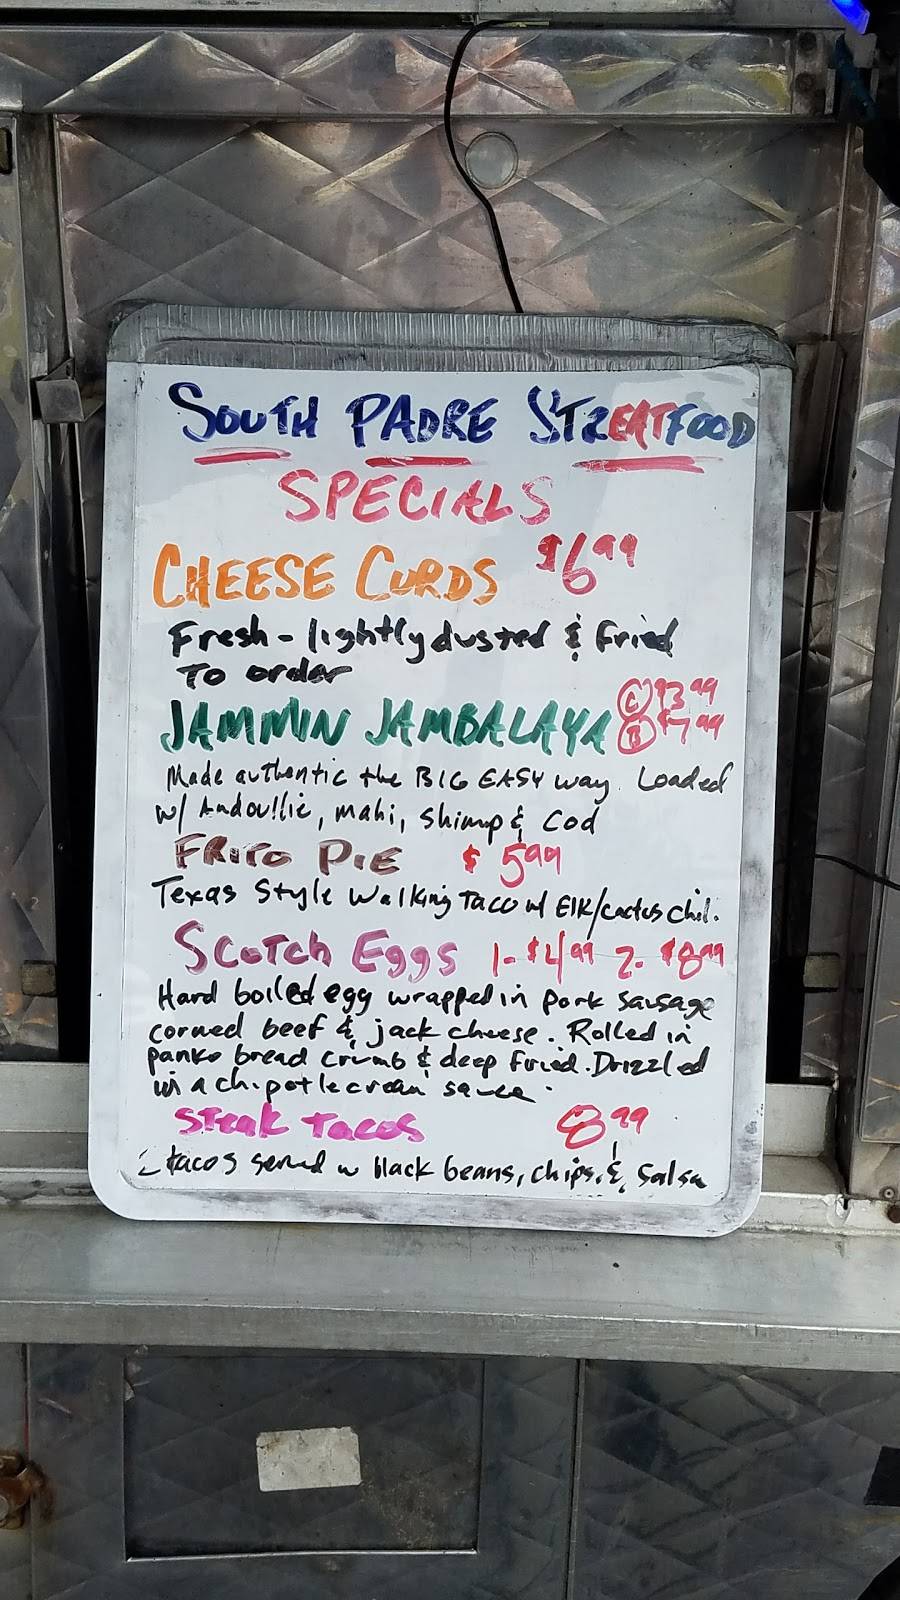 SOUTH PADRE STREATFOOD
SPECIALS
CHEESE CURDS $6.99
Fresh - lightly dusted & fried
To order
JAMMIN JAMBALAYA Ⓒ $3.99
Ⓑ $7.99
Made authentic the BIG EASY way. Loaded
w/ Andoullie, mahi, shimp & Cod
FRITO PIE $5.99
Texas Style Walking Taco w/ Elk/cactus chil.
Scotch Eggs 1- $4.99 2- $8.99
Hard boiled egg wrapped in pork sausage
corned beef & jack cheese. Rolled in
panko bread crumb & deep fried. Drizzled
in a chipotle cream sauce.
Steak Tacos 8.99
2 tacos served w black beans, chips, & salsa